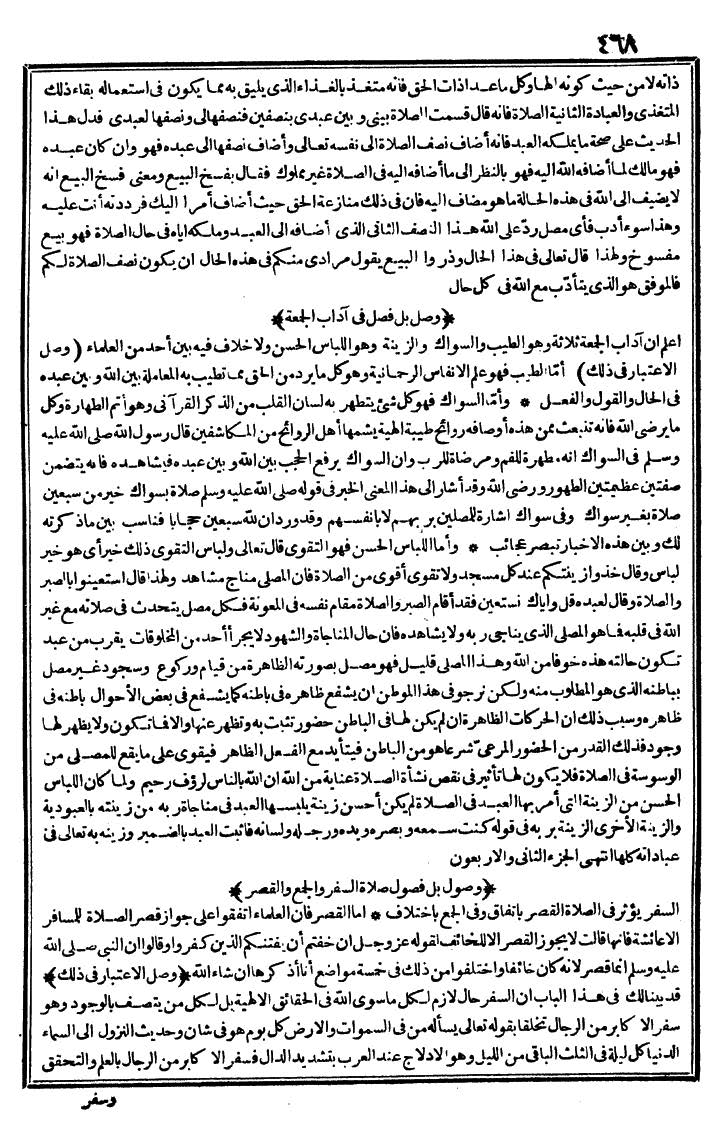 ٤٦٨
ذاته لا من حيث كونه الها وكل ما عدا ذات الحق فانه متغذ بالغذاء الذى يليق به مما يكون فى استعماله بقاء ذلك
المتغذى والعبادة الثانية الصلاة فانه قال قسمت الصلاة بينى وبين عبدى بنصفين فنصفها لى ونصفها لعبدى فدل هذا
الحديث على صحة ما يملكه العبد فانه أضاف نصف الصلاة الى نفسه تعالى وأضاف نصفها الى عبده فهو وان كان عبده
فهو مالك لما أضافه الله اليه فهو بالنظر الى ما أضافه اليه فى الصلاة غير مملوك فقال بفسخ البيع ومعنى فسخ البيع انه
لا يضيف الى الله فى هذه الحالة ما هو مضاف اليه فان فى ذلك منازعة الحق حيث أضاف أمرا اليك فرددته أنت عليه
وهذا سوء أدب فأى مصل ردّ على الله هذا النصف الثانى الذى أضافه الى العبد وملكه اياه فى حال الصلاة فهو بيع
مفسوخ ولهذا قال تعالى فى هذا الحال وذروا البيع يقول مرادى منكم فى هذه الحال ان يكون نصف الصلاة لكم
فالموفق هو الذى يتأدّب مع الله فى كل حال
﴿وصل بل فصل فى آداب الجمعة﴾
اعلم ان آداب الجمعة ثلاثة وهو الطيب والسواك والزينة وهو اللباس الحسن ولا خلاف فيه بين أحد من العلماء (وصل
الاعتبار فى ذلك) أمّا الطيب فهو علم الانفاس الرحمانية وهو كل ما يرد من الحق مما تطيب به المعاملة بين الله وبين عبده
فى الحال والقول والفعل * وأمّا السواك فهو كل شئ يتطهر به لسان القلب من الذكر القرآنى وهو أتم الطهارة وكل
ما يرضى الله فانه تنبعث ممن هذه أوصافه روائح طيبة الهية يشمها أهل الروائح من المكاشفين قال رسول الله صلى الله عليه
وسلم فى السواك انه مطهرة للفم ومرضاة للرب وان السواك يرفع الحجب بين الله وبين عبده فيشاهده فانه يتضمن
صفتين عظيمتين الطهور ورضى الله وقد أشار الى هذا المعنى الخبر فى قوله صلى الله عليه وسلم صلاة بسواك خير من سبعين
صلاة بغير سواك وفى سواك اشارة للمصلين بربهم لا بانفسهم وقد ورد ان لله سبعين حجابا فناسب بين ما ذكرته
لك وبين هذه الاخبار تبصر عجائب * وأما اللباس الحسن فهو التقوى قال تعالى ولباس التقوى ذلك خير أى هو خير
لباس وقال خذوا زينتكم عند كل مسجد ولا تقوى أقوى من الصلاة فان المصلى مناج مشاهد ولهذا قال استعينوا بالصبر
والصلاة وقال لعبده قل واياك نستعين فقد أقام الصبر والصلاة مقام نفسه فى المعونة فكل مصل يتحدث فى صلاته مع غير
الله فى قلبه فما هو المصلى الذى يناجى ربه ولا يشاهده فان حال المناجاة والشهود لا يجرأ أحد من المخلوقات يقرب من عبد
تكون حالته هذه خوفا من الله وهذا المصلى قليل فهو مصل بصورته الظاهرة من قيام وركوع وسجود غير مصل
بباطنه الذى هو المطلوب منه ولكن نرجو فى هذا الموطن ان يشفع ظاهره فى باطنه كما يشفع فى بعض الأحوال باطنه فى
ظاهره وسبب ذلك ان الحركات الظاهرة ان لم يكن لها فى الباطن حضور تثبت به وتظهر عنها والا فما تكون ولا يظهر لها
وجود فذلك القدر من الحضور المرعىّ شرعا هو من الباطن فيتأيد مع الفعل الظاهر فيقوى على ما يقع للمصلى من
الوسوسة فى الصلاة فلا يكون لها تأثير فى نقص نشأة الصلاة عناية من الله ان الله بالناس لرؤف رحيم ولما كان اللباس
الحسن من الزينة التى أمر بها العبد فى الصلاة لم يكن أحسن زينة يلبسها العبد فى مناجاة ربه من زينته بالعبودية
والزينة الأخرى الزينة بربه فى قوله كنت سمعه وبصره ويده ورجله ولسانه فاثبت العبد بالضمير وزينه به تعالى فى
عباداته كلها انتهى الجزء الثانى والاربعون
﴿وصول بل فصول صلاة السفر والجمع والقصر﴾
السفر يؤثر فى الصلاة القصر باتفاق وفى الجمع باختلاف * اما القصر فان العلماء اتفقوا على جواز قصر الصلاة للمسافر
الا عائشة فانها قالت لا يجوز القصر الا للخائف لقوله عز وجل ان خفتم أن يفتنكم الذين كفروا وقالوا ان النبى صلى الله
عليه وسلم انما قصر لانه كان خائفا واختلفوا من ذلك فى خمسة مواضع أنا أذكرها ان شاء الله ﴿وصل الاعتبار فى ذلك﴾
قد بينا لك فى هذا الباب ان السفر حال لازم لكل ما سوى الله فى الحقائق الالهية بل لكل من يتصف بالوجود وهو
سفر الاكابر من الرجال تخلقا بقوله تعالى يسأله من فى السموات والارض كل يوم هو فى شان وحديث النزول الى السماء
الدنيا كل ليلة فى الثلث الباقى من الليل وهو الادلاج عند العرب بتشديد الدال فسفر الاكابر من الرجال بالعلم والتحقق
وسفر